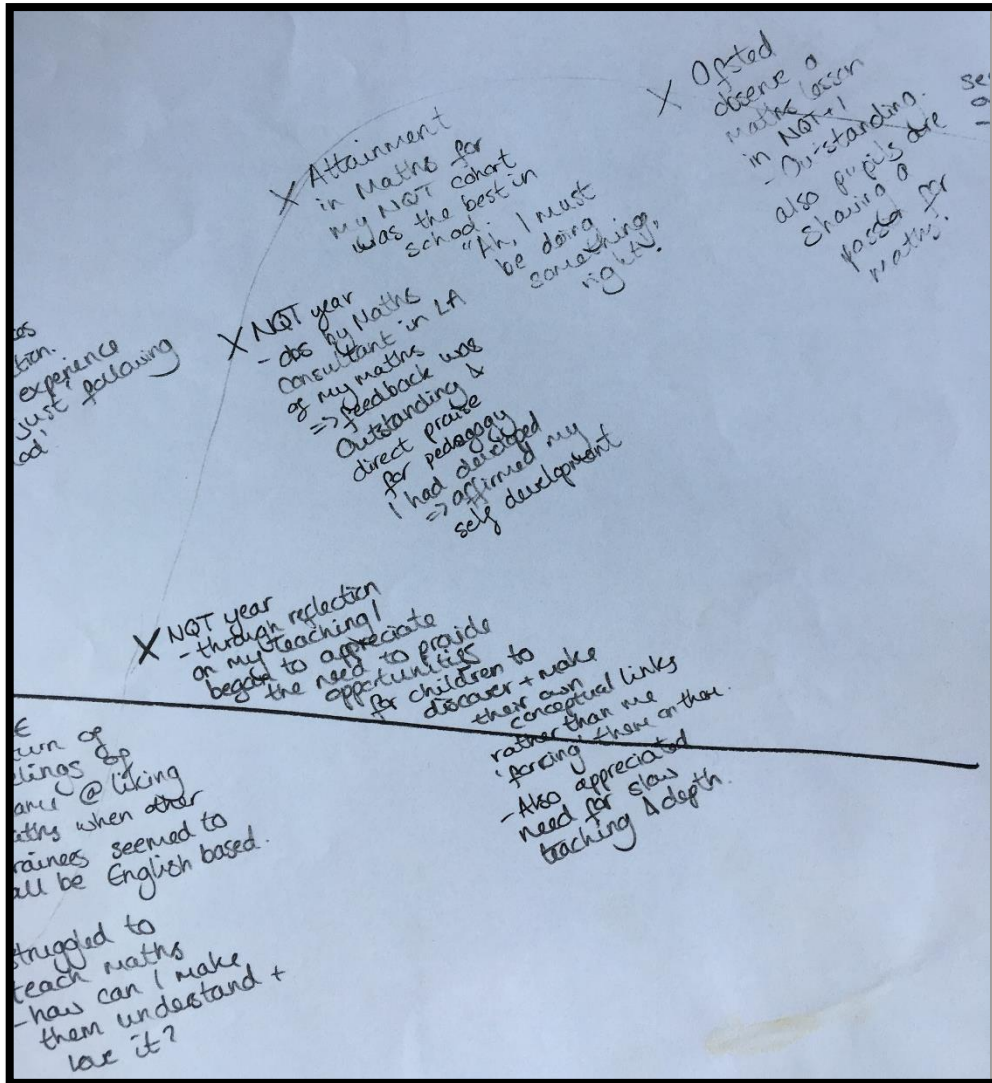 X Ofsted
observe a
maths lesson
in NQT+1
- Outstanding.
also pupils are
sharing a
passion for
maths!
X Attainment
in Maths for
my NQT cohort
was the best in
school
"Ah, I must
be doing
something
right"
X NQT year
- obs by Maths
consultant in LA
of my maths
=> feedback was
Outstanding &
direct praise
for pedagogy
I had developed
=> affirmed my
self development
experience
just following
X NQT year
- through reflection
on my teaching I
began to appreciate
the need to provide
opportunities
for children to
discover + make
their own
conceptual links
rather than me
'forcing' them on them.
- Also appreciated
need for slow
teaching & depth.
@ liking
when other
seemed to
be English based.
struggled to
teach maths
- how can I make
them understand +
love it?